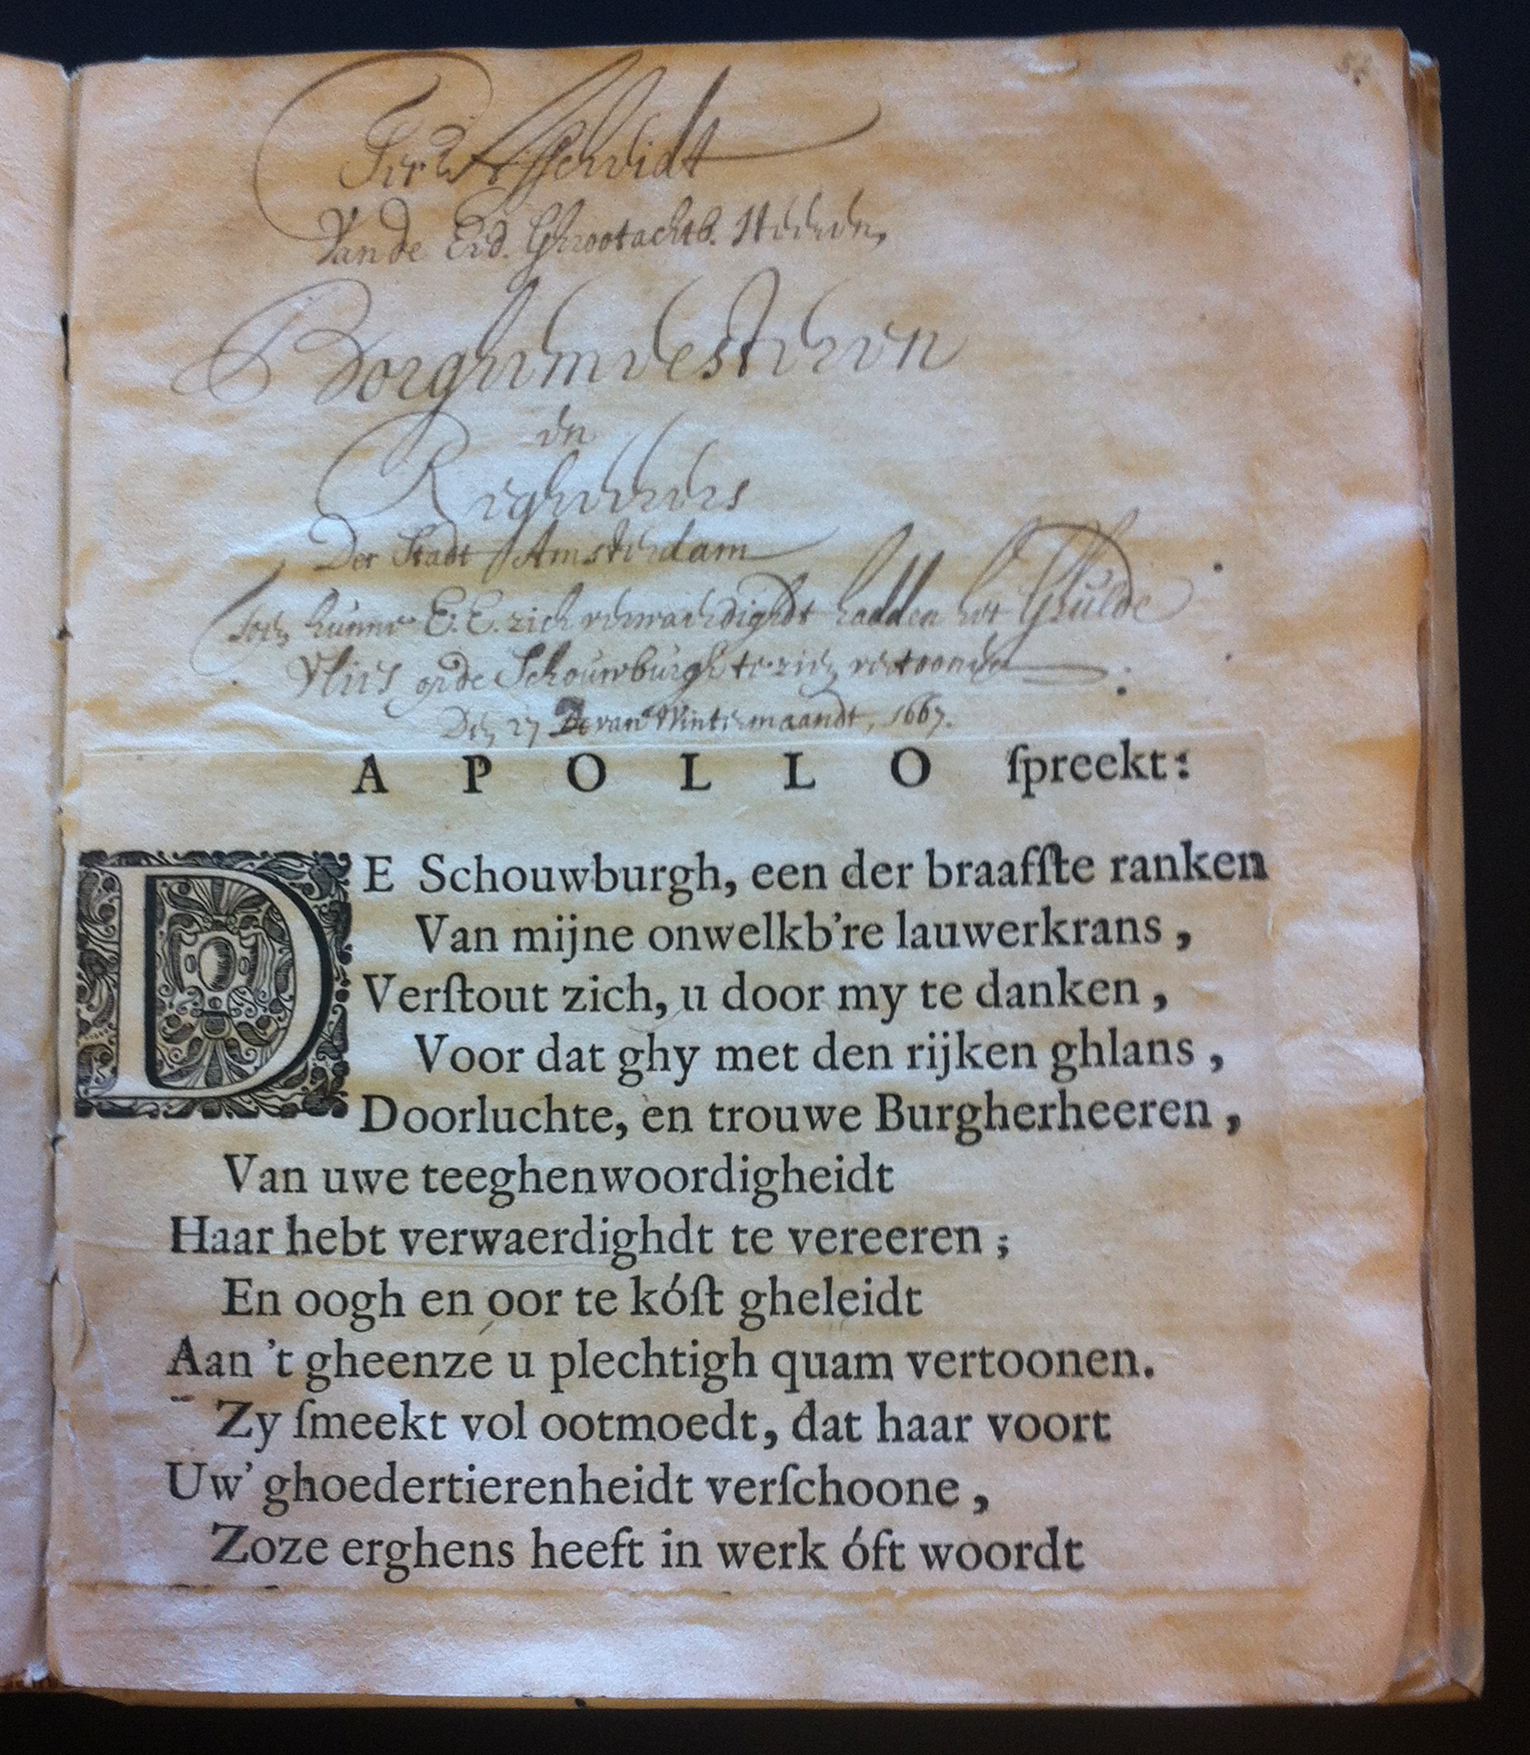 Ter Afscheidt
Van de Ed. Grootachtb. Heeren,
Borghermeesteren
en
Regheerders
Der Stadt Amsterdam
Toen hunne E.E. zich verwaerdighdt hadden het Ghulde
Vlies op de Schouwburgh te zien vertoonen
Den 27 van Wintermaandt, 1667.
APOLLO ſpreekt:
DE Schouwburgh, een der braafſte ranken
Van mijne onwelkb're lauwerkrans,
Verſtout zich, u door my te danken,
Voor dat ghy met den rijken ghlans,
Doorluchte, en trouwe Burgherheeren,
Van uwe teeghenwoordigheidt
Haar hebt verwaerdighdt te vereeren;
En oogh en oor te kóſt gheleidt
Aan 't gheenze u plechtigh quam vertoonen.
Zy ſmeekt vol ootmoedt, dat haar voort
Uw' ghoedertierenheidt verſchoone,
Zoze erghens heeft in werk óft woordt